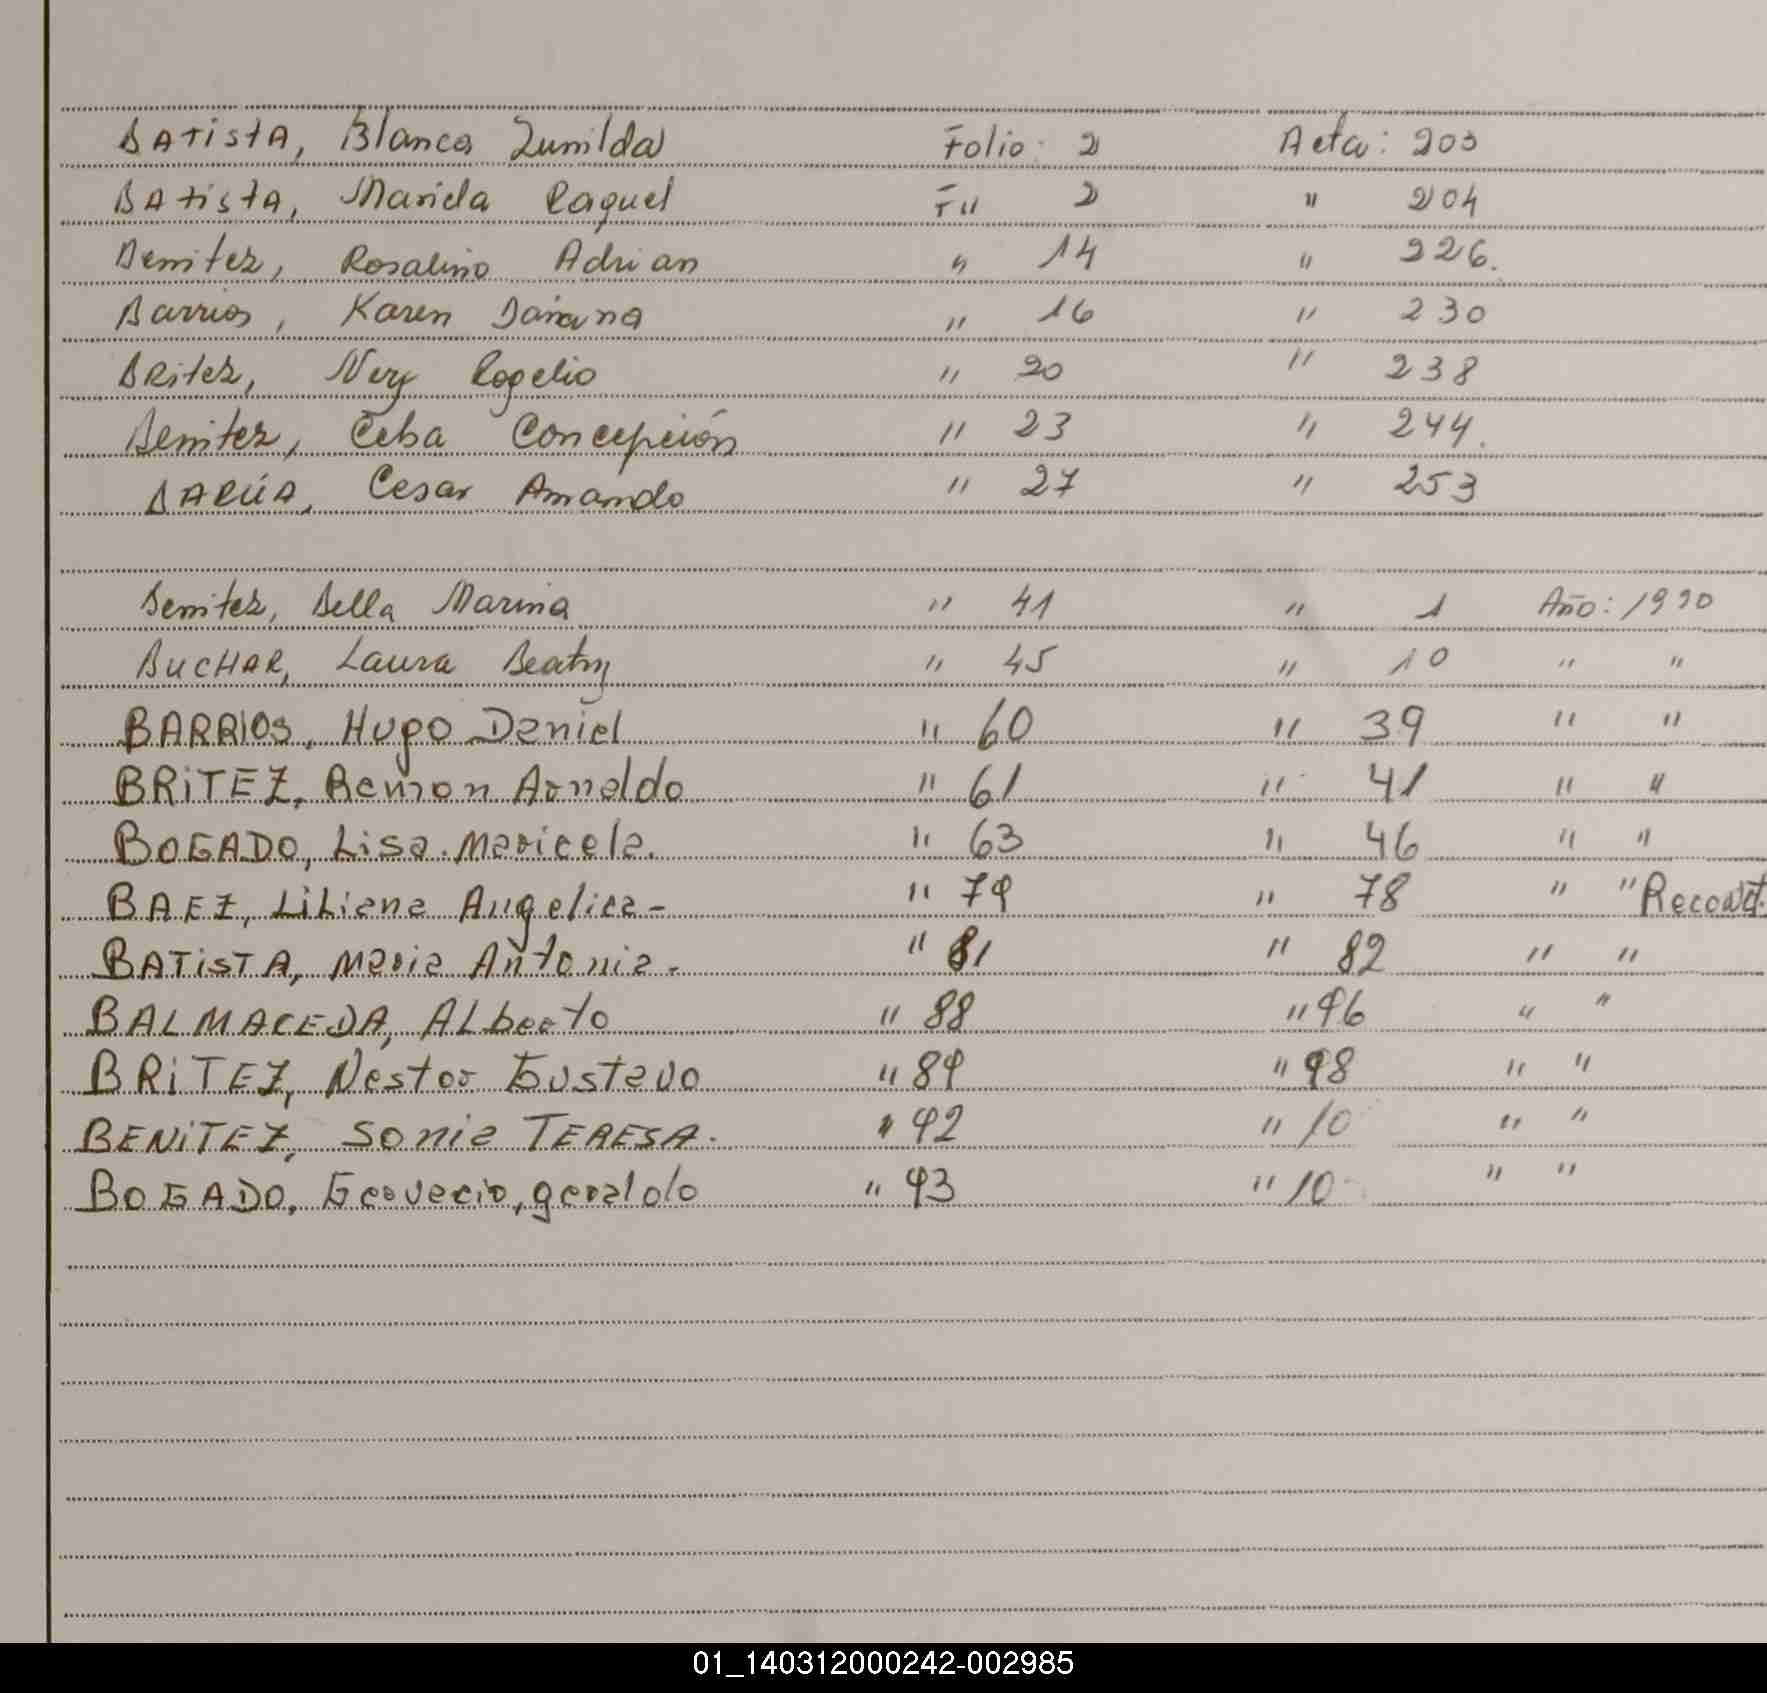 BATistA, Blanca Zunilda Folio: 2 Acta: 203
BAtistA, Mariela Raquel F" 2 " 204
Benitez, Rosalino Adrian " 14 " 226.
Barrios, Karen Daiana " 16 " 230
BRitez, Nery Rogelio " 20 " 238
Benitez, Celsa Concepción " 23 " 244.
BARÚA, Cesar Amando " 27 " 253
Benitez, Bella Marina " 41 " 1 Año: 1990
BUCHAR, Laura Beatriz " 45 " 10 " "
BARRIOS, Hugo Daniel " 60 " 39 " "
BRiTEZ, Ramon Arnaldo " 61 " 41 " "
BOGADO, Lisa Maricela. " 63 " 46 " "
BAEZ, LiLiana Angelica- " 79 " 78 " "
BATisTA, Maria Antonia- " 81 " 82 " "
BALMACEDA, ALberto " 88 " 96 " "
BRiTEZ, Nestor Gustavo " 89 " 98 " "
BENiTEZ, Sonia TERESA. " 92 " 10 " "
BOGADO, Gervacio, geraldo " 93 " 10 " "
01_140312000242-002985